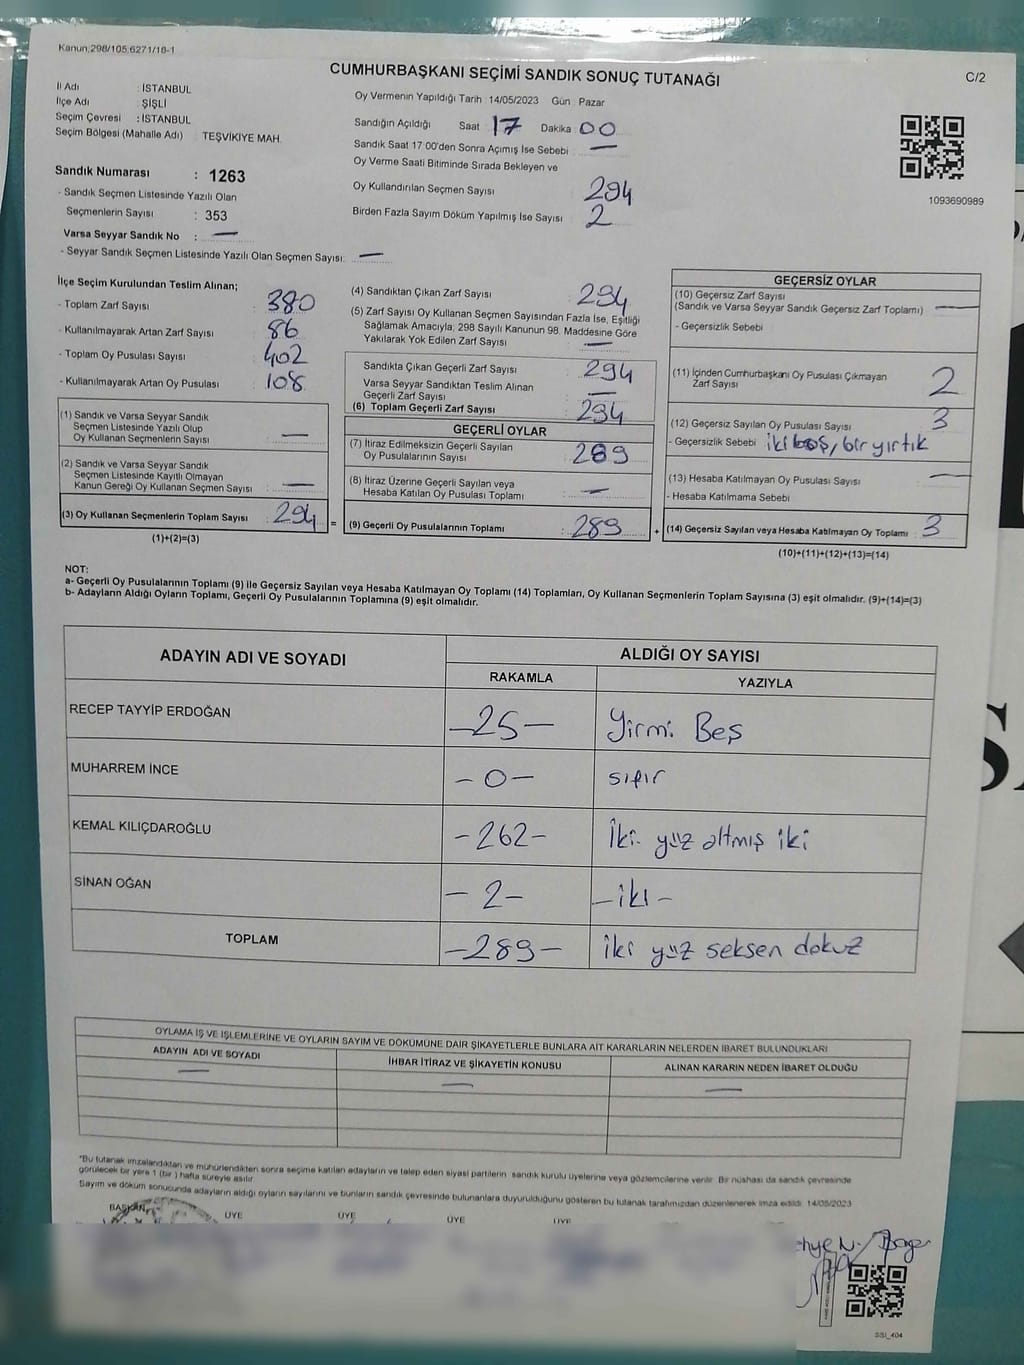 Kanun;298/105,6271/18-1
CUMHURBAŞKANI SEÇİMİ SANDIK SONUÇ TUTANAĞI
C/2
İl Adı : İSTANBUL
İlçe Adı : ŞİŞLİ
Seçim Çevresi : İSTANBUL
Seçim Bölgesi (Mahalle Adı) : TEŞVİKİYE MAH.
Sandık Numarası : 1263
- Sandık Seçmen Listesinde Yazılı Olan
Seçmenlerin Sayısı : 353
Varsa Seyyar Sandık No : —
- Seyyar Sandık Seçmen Listesinde Yazılı Olan Seçmen Sayısı: —
Oy Vermenin Yapıldığı Tarih : 14/05/2023 Gün : Pazar
Sandığın Açıldığı Saat 17 Dakika 00
Sandık Saat 17:00'den Sonra Açımış İse Sebebi : —
Oy Verme Saati Bitiminde Sırada Bekleyen ve
Oy Kullandırılan Seçmen Sayısı : 294
Birden Fazla Sayım Döküm Yapılmış İse Sayısı : 2
1093690989
İlçe Seçim Kurulundan Teslim Alınan;
- Toplam Zarf Sayısı : 380
- Kullanılmayarak Artan Zarf Sayısı : 86
- Toplam Oy Pusulası Sayısı : 402
- Kullanılmayarak Artan Oy Pusulası : 108
(1) Sandık ve Varsa Seyyar Sandık
Seçmen Listesinde Yazılı Olup
Oy Kullanan Seçmenlerin Sayısı : —
(2) Sandık ve Varsa Seyyar Sandık
Seçmen Listesinde Kayıtlı Olmayan
Kanun Gereği Oy Kullanan Seçmen Sayısı : —
(3) Oy Kullanan Seçmenlerin Toplam Sayısı : 294 =
(1)+(2)=(3)
(4) Sandıktan Çıkan Zarf Sayısı : 294
(5) Zarf Sayısı Oy Kullanan Seçmen Sayısından Fazla İse, Eşitliği
Sağlamak Amacıyla; 298 Sayılı Kanunun 98. Maddesine Göre
Yakılarak Yok Edilen Zarf Sayısı : —
Sandıkta Çıkan Geçerli Zarf Sayısı : 294
Varsa Seyyar Sandıktan Teslim Alınan
Geçerli Zarf Sayısı : —
(6) Toplam Geçerli Zarf Sayısı : 294
GEÇERLİ OYLAR
(7) İtiraz Edilmeksizin Geçerli Sayılan
Oy Pusulalarının Sayısı : 289
(8) İtiraz Üzerine Geçerli Sayılan veya
Hesaba Katılan Oy Pusulası Toplamı : —
(9) Geçerli Oy Pusulalarının Toplamı : 289 +
GEÇERSİZ OYLAR
(10) Geçersiz Zarf Sayısı
(Sandık ve Varsa Seyyar Sandık Geçersiz Zarf Toplamı) : —
- Geçersizlik Sebebi
(11) İçinden Cumhurbaşkanı Oy Pusulası Çıkmayan
Zarf Sayısı : 2
(12) Geçersiz Sayılan Oy Pusulası Sayısı : 3
- Geçersizlik Sebebi : iki boş, bir yırtık
(13) Hesaba Katılmayan Oy Pusulası Sayısı : —
- Hesaba Katılmama Sebebi
(14) Geçersiz Sayılan veya Hesaba Katılmayan Oy Toplamı : 3
(10)+(11)+(12)+(13)=(14)
NOT:
a- Geçerli Oy Pusulalarının Toplamı (9) ile Geçersiz Sayılan veya Hesaba Katılmayan Oy Toplamı (14) Toplamları, Oy Kullanan Seçmenlerin Toplam Sayısına (3) eşit olmalıdır. (9)+(14)=(3)
b- Adayların Aldığı Oyların Toplamı, Geçerli Oy Pusulalarının Toplamına (9) eşit olmalıdır.
ADAYIN ADI VE SOYADI
ALDIĞI OY SAYISI
RAKAMLA YAZIYLA
RECEP TAYYİP ERDOĞAN —25— Yirmi Beş
MUHARREM İNCE —0— sıfır
KEMAL KILIÇDAROĞLU —262— İki yüz altmış iki
SİNAN OĞAN —2— —iki—
TOPLAM —289— iki yüz seksen dokuz
OYLAMA İŞ VE İŞLEMLERİNE VE OYLARIN SAYIM VE DÖKÜMÜNE DAİR ŞİKAYETLERLE BUNLARA AİT KARARLARIN NELERDEN İBARET BULUNDUKLARI
ADAYIN ADI VE SOYADI İHBAR İTİRAZ VE ŞİKAYETİN KONUSU ALINAN KARARIN NEDEN İBARET OLDUĞU
— — —
*Bu tutanak imzalandıktan ve mühürlendikten sonra seçime katılan adayların ve talep eden siyasi partilerin sandık kurulu üyelerine veya gözlemcilerine verilir. Bir nüshası da sandık çevresinde
görülecek bir yere 1 (bir ) hafta süreyle asılır.
Sayım ve döküm sonucunda adayların aldığı oyların sayılarını ve bunların sandık çevresinde bulunanlara duyurulduğunu gösteren bu tutanak tarafımızdan düzenlenerek imza edildi. 14/05/2023
BAŞKAN ÜYE ÜYE ÜYE ÜYE
SSI_404